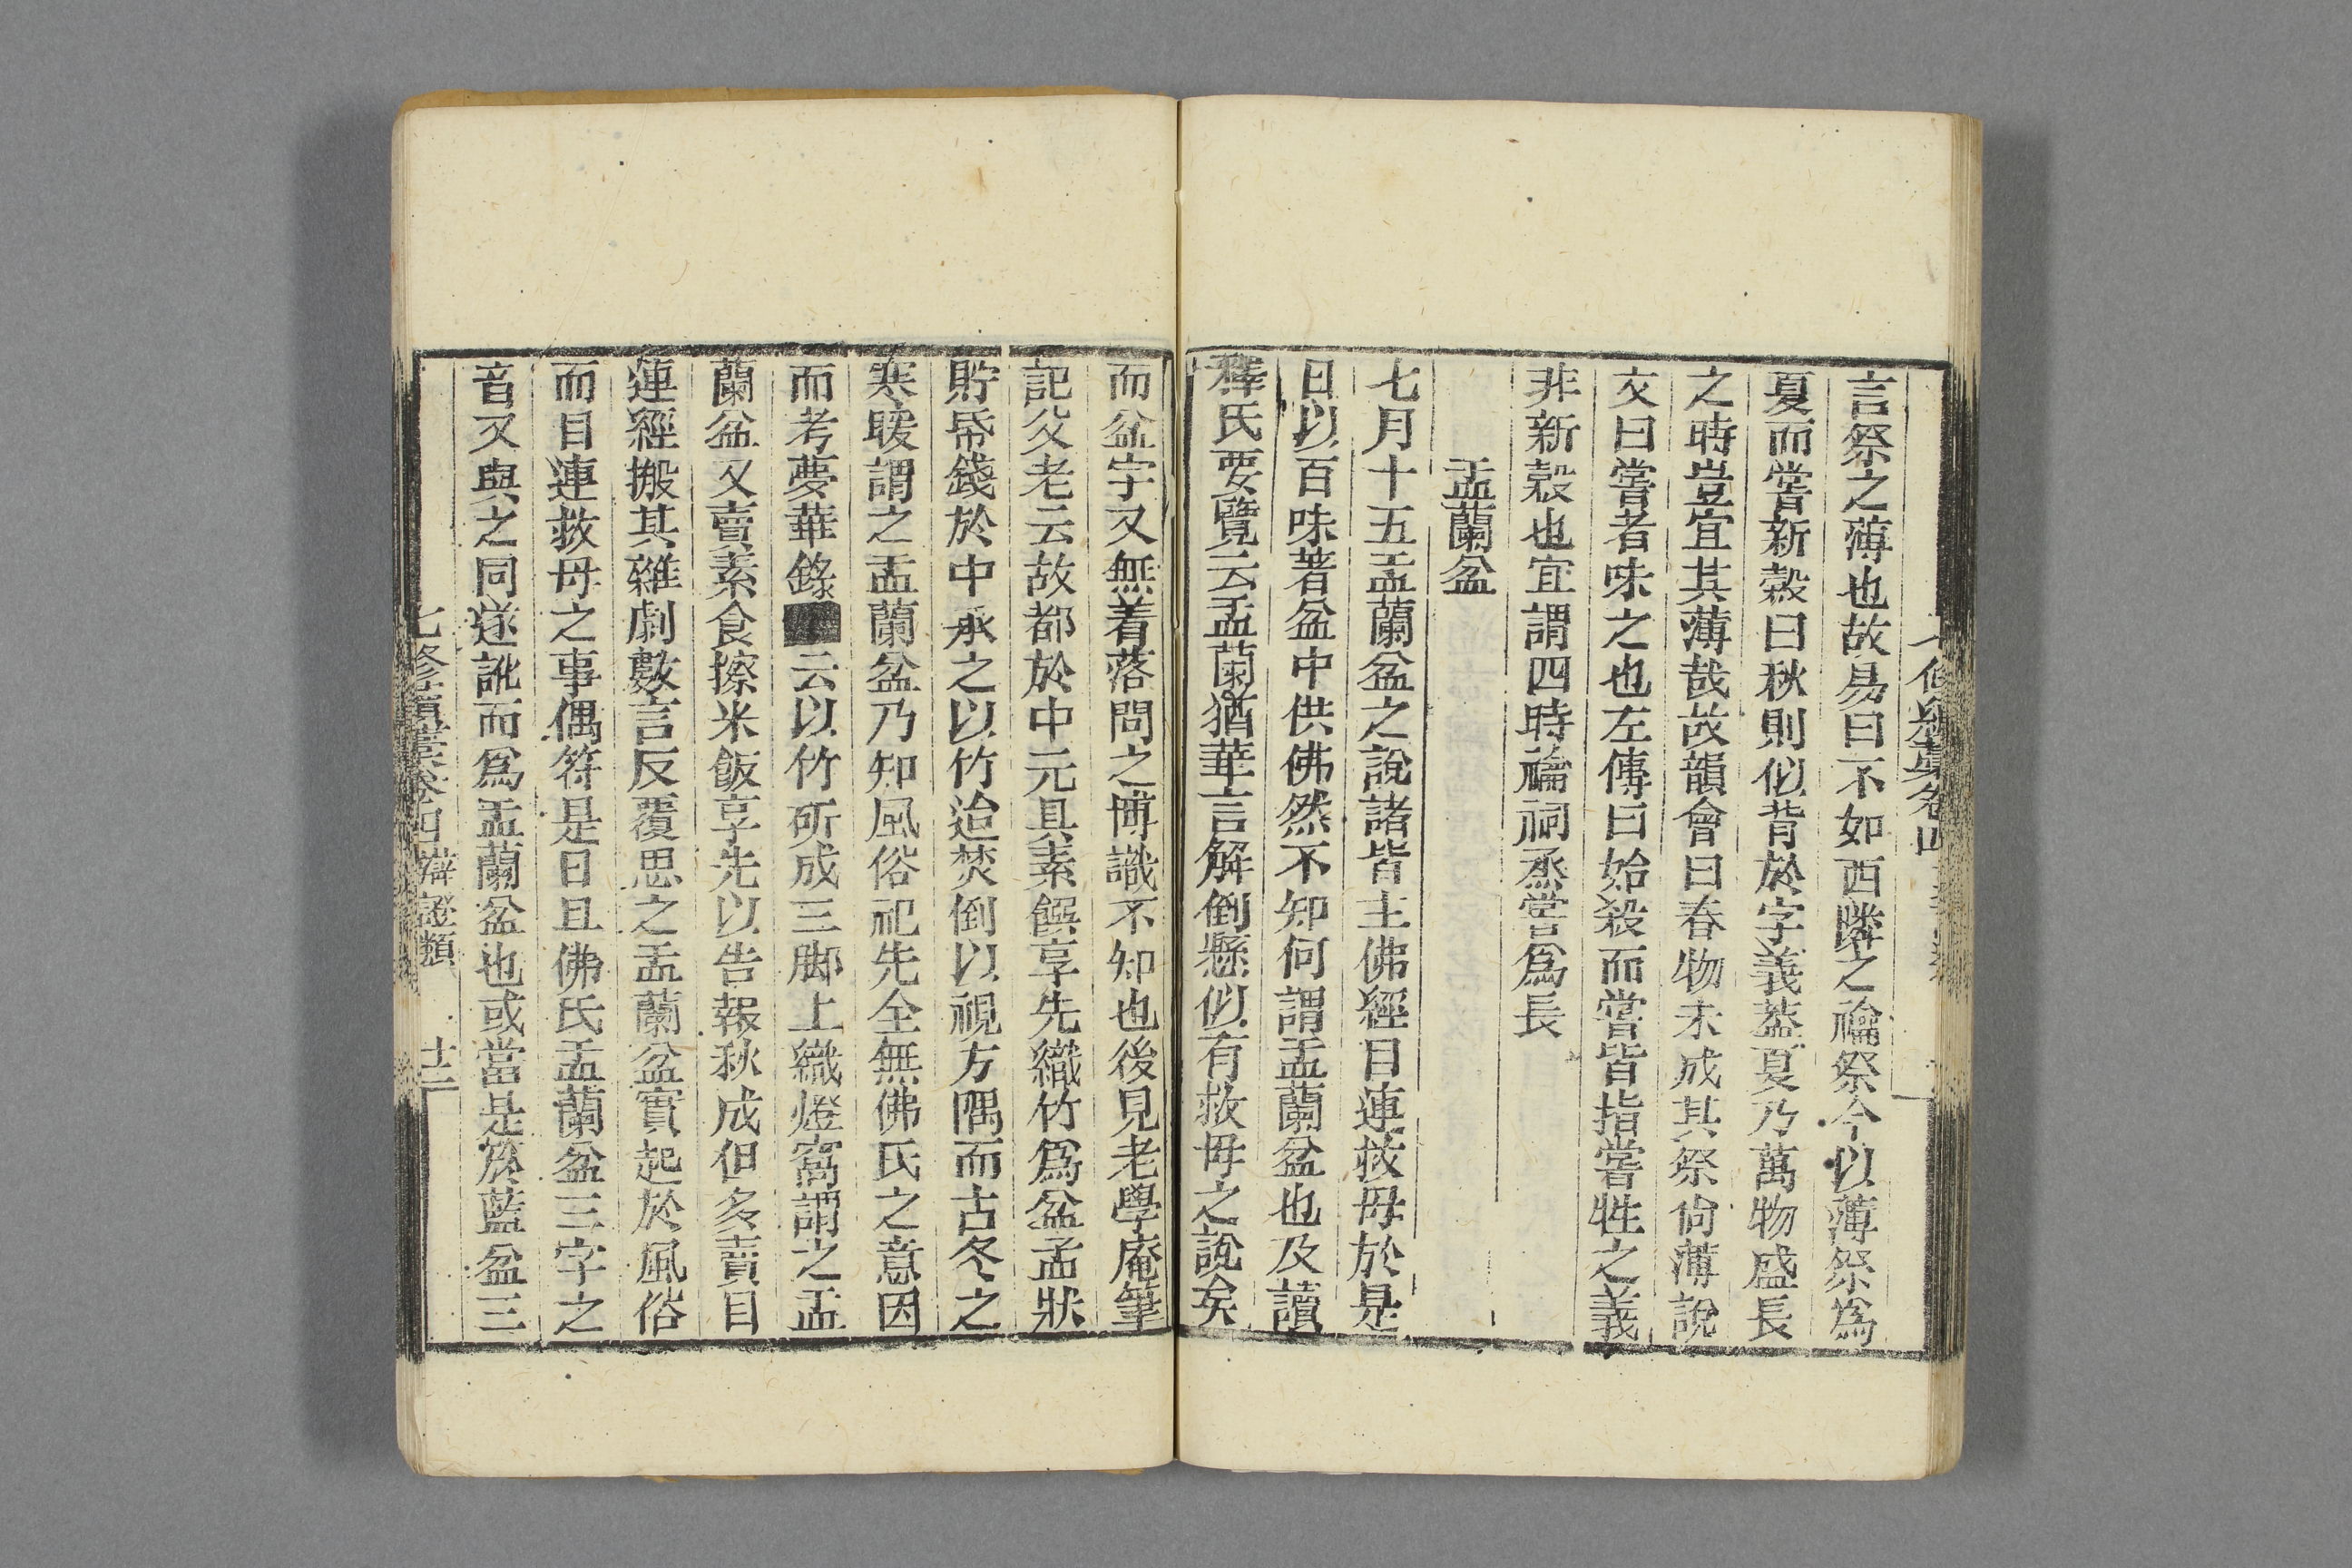 言祭之薄也故易曰不如西隣之禴祭今以薄祭為
夏而嘗新穀曰秋則似背於字義葢夏乃萬物盛長
之時豈宜其薄哉故韻會曰春物未成其祭尙薄說
文曰嘗者味之也左傳曰始殺而嘗皆指嘗牲之義
非新穀也宜謂四時禴祠烝嘗爲長
盂蘭盆
七月十五盂蘭盆之說諸皆主佛經目連救母於是
日以百味著盆中供佛然不知何謂盂蘭盆也及讀
釋氏要覽云盂蘭猶華言解倒懸似有救母之說矣
而盆字又無着落問之博識不知也後見老學庵筆
記父老云故都於中元具素饌享先織竹爲盆盂狀
貯帋錢於中承之以竹迨焚倒以視方隅而古冬之
寒暖謂之盂蘭盆乃知風俗祀先全無佛氏之意因
而考夢華錄云以竹斫成三脚上織燈窩謂之盂
蘭盆又賣素食擦米飯享先以告報秋成但多賣目
蓮經搬其雜劇數言反覆思之盂蘭盆實起於風俗
而目連救母之事偶符是日且佛氏盂蘭盆三字之
音又與之同遂訛而爲盂蘭盆也或當是箊藍盆三
七修續藁卷四 辯證類 十二